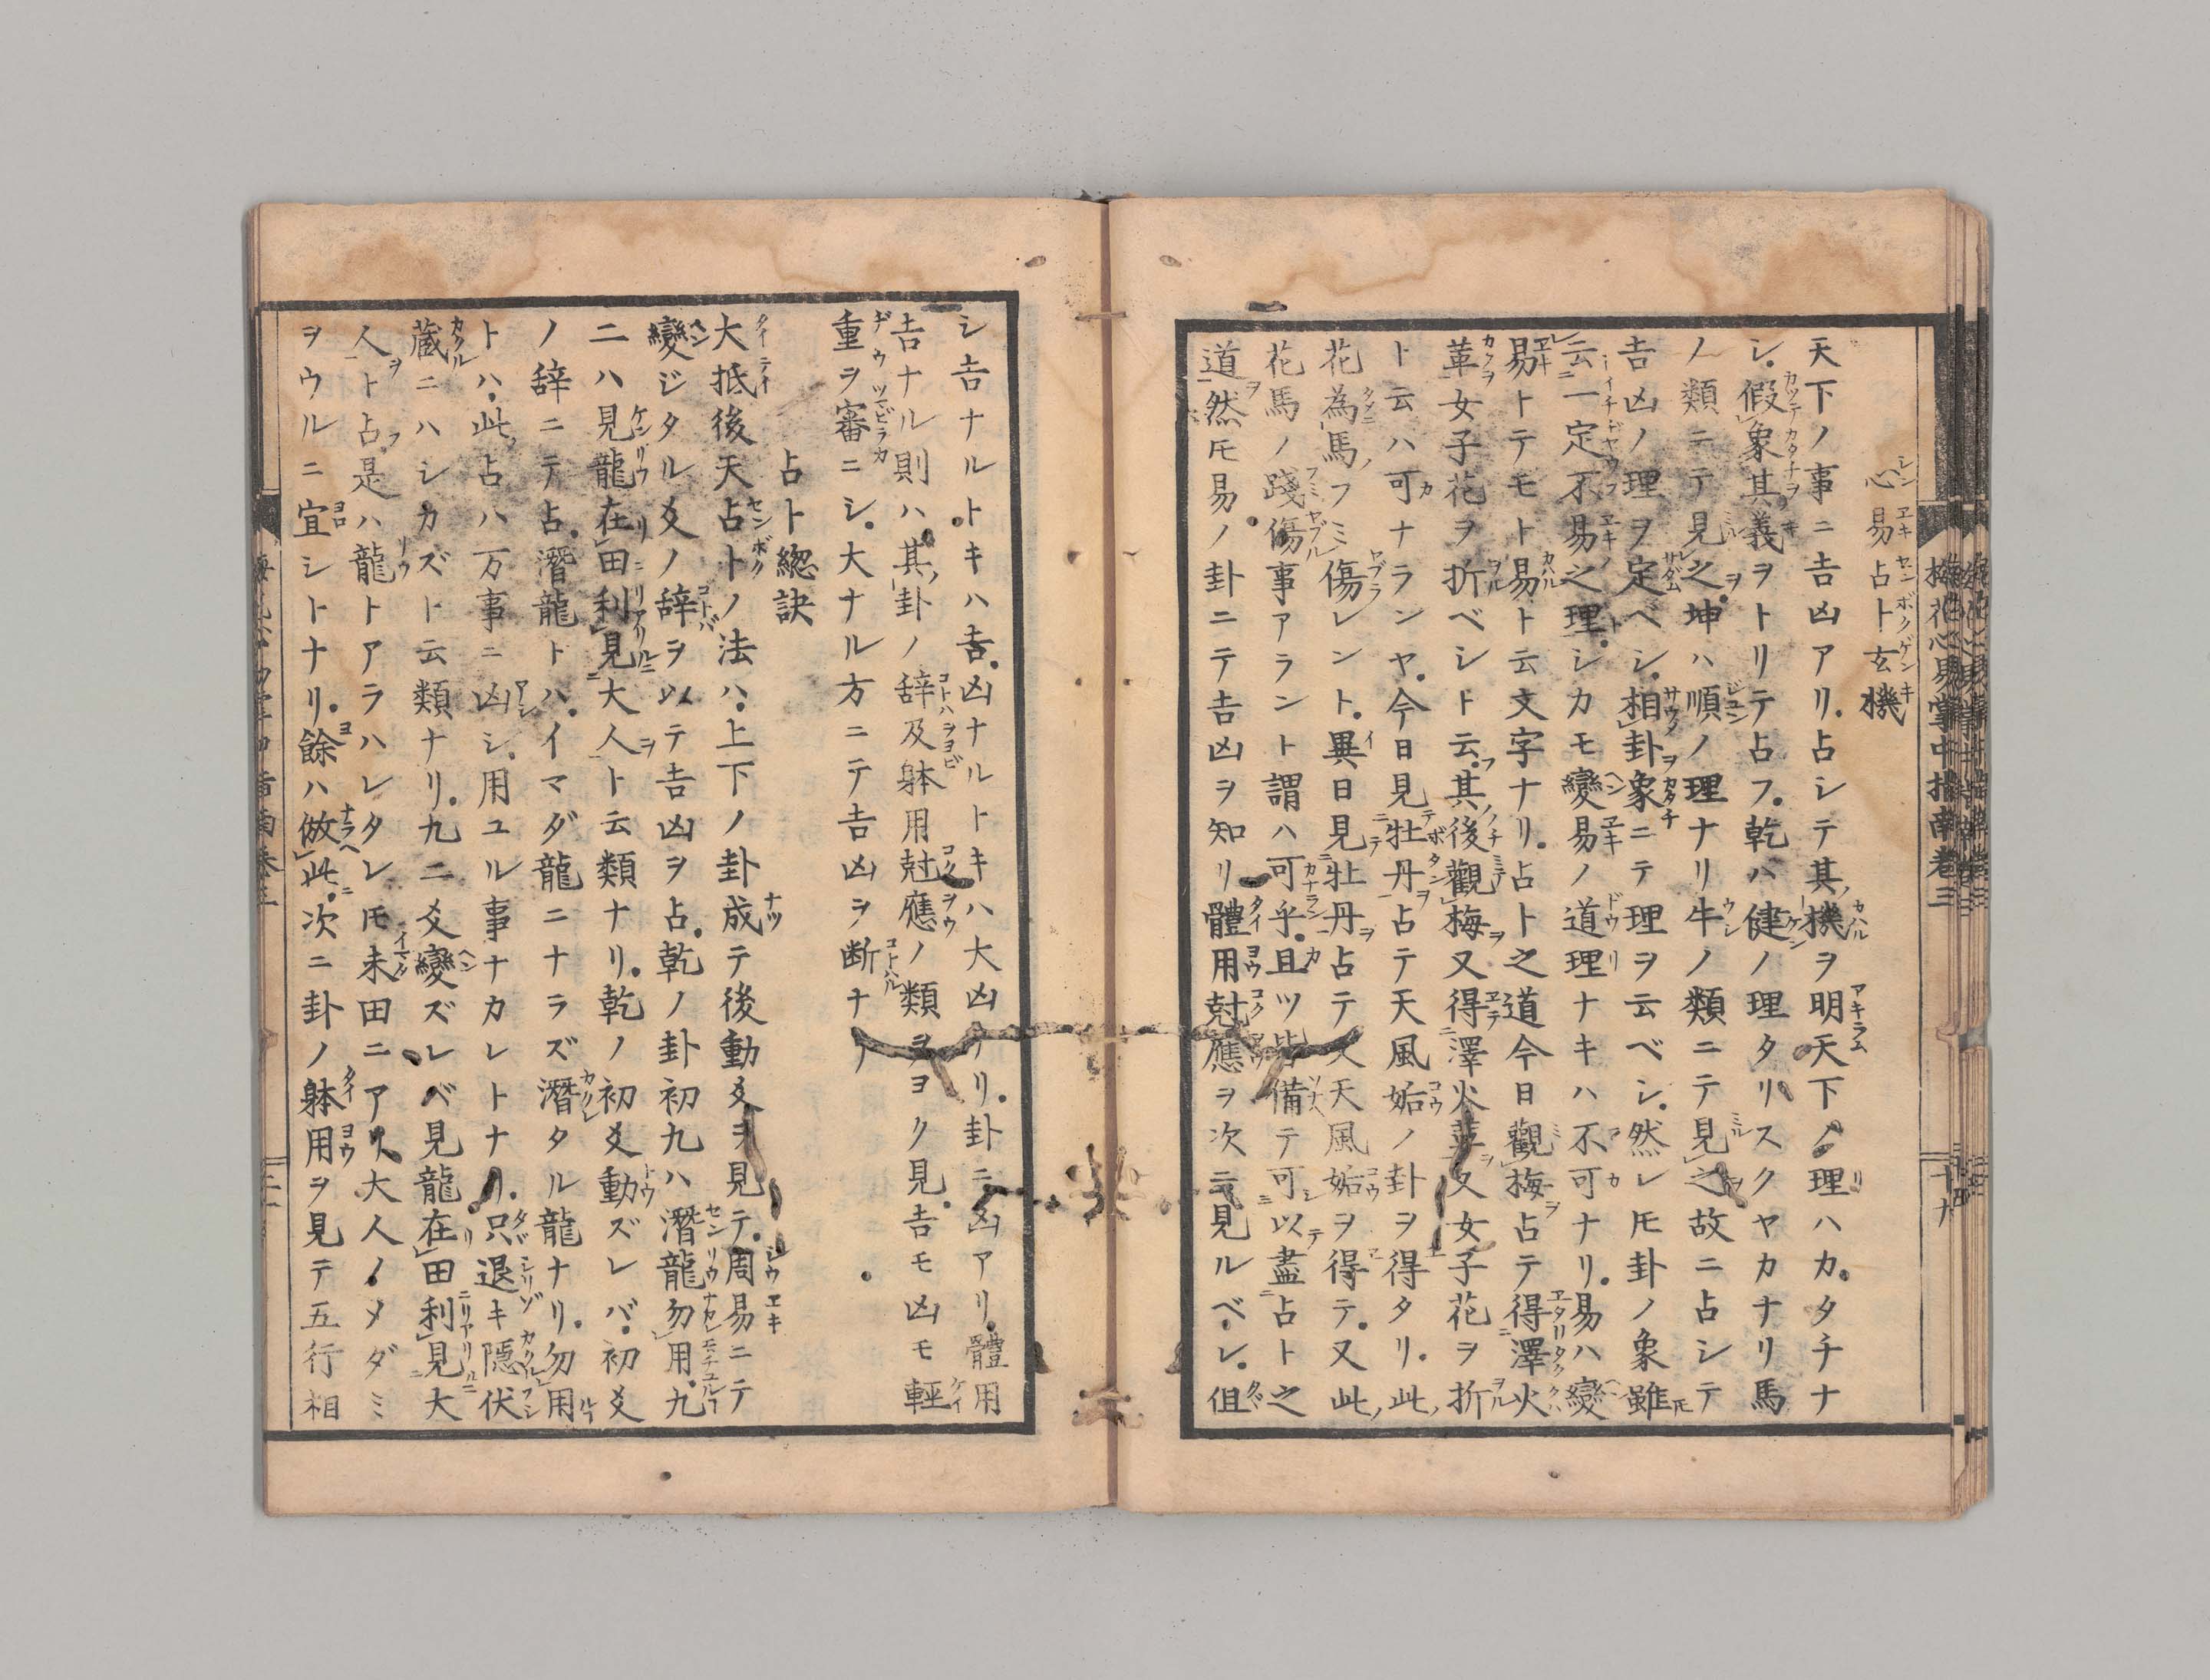 梅花心易掌中指南卷三
心易占卜玄機
天下ノ事ニ吉凶アリ占シテ其機ヲ明天下ノ理ハカタチナ
シ假象其義ヲトリテ占フ乾ハ健ノ理タリスクヤカナリ馬
ノ類ニテ見之坤ハ順ノ理ナリ牛ノ類ニテ見之故ニ占シテ
吉凶ノ理ヲ定ベシ相卦象ニテ理ヲ云ベシ然レ𪜈卦ノ象雖
云一定不易之理シカモ變易ノ道理ナキハ不可ナリ易ハ變
易トテモト易ト云文字ナリ占卜之道今日觀梅占テ得澤火
革女子花ヲ折ベシト云其後觀梅又得澤火革又女子花ヲ折
ト云ハ可ナランヤ今日見牡丹占テ天風姤ノ卦ヲ得タリ此
花為馬フミ傷レント異日見牡丹占テ又天風姤ヲ得テ又此
花馬ノ踐傷事アラント謂ハ可乎且ツ皆備テ可以盡占卜之
道然𪜈易ノ卦ニテ吉凶ヲ知リ體用尅應ヲ次ニ見ルベシ但
シ吉ナルトキハ吉凶ナルトキハ大凶ナリ卦ニ凶アリ體用
吉ナル則ハ其卦ノ辞及躰用尅應ノ類ヲヨク見吉モ凶モ輕
重ヲ審ニシ大ナル方ニテ吉凶ヲ断ナリ
占卜緫訣
大抵後天占卜ノ法ハ上下ノ卦成テ後動爻ヲ見テ周易ニテ
變ジタル爻ノ辞ヲ以テ吉凶ヲ占乾ノ卦初九ハ潛龍勿用九
二ハ見龍在田利見大人ト云類ナリ乾ノ初爻動ズレバ初爻
ノ辞ニテ占潛龍トハイマダ龍ニナラズ潛タル龍ナリ勿用
トハ此占ハ万事ニ凶シ用ユル事ナカレトナリ只退キ隱伏
蔵ニハシカズト云類ナリ九二爻變ズレバ見龍在田利見大
人ト占是ハ龍トアラハレタレ𪜈未田ニアリ大人ノメダミ
ヲウルニ宜シトナリ餘ハ倣此次ニ卦ノ躰用ヲ見テ五行相